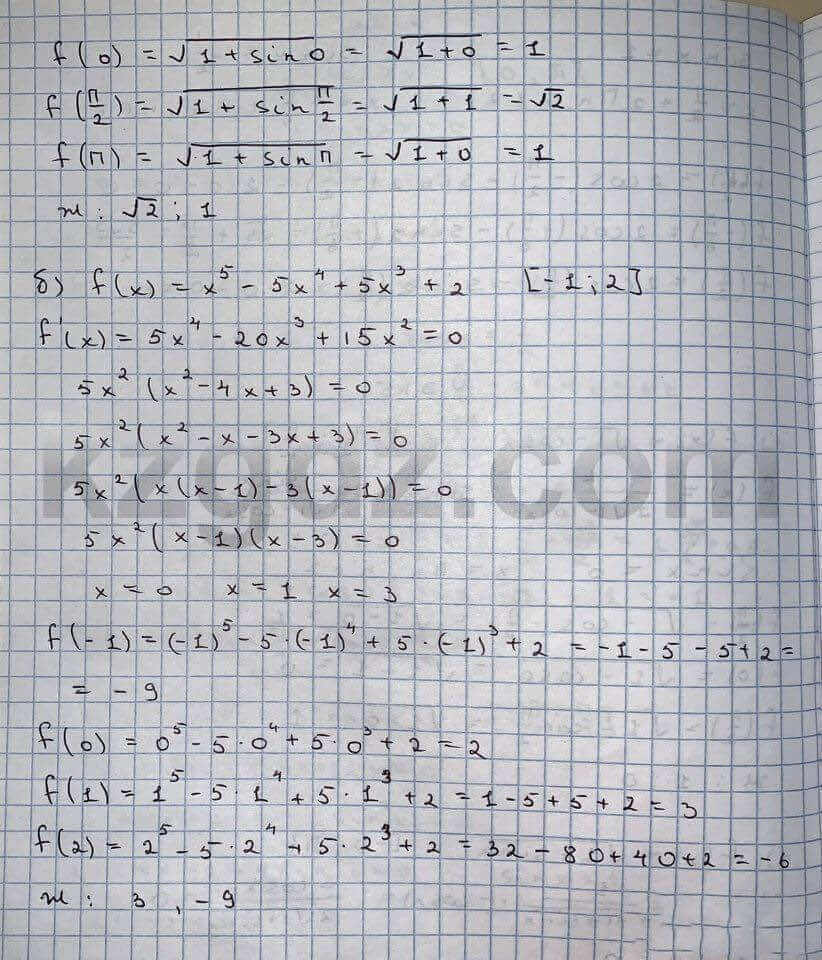 f(0) = √1+sin0 = √1+0 = 1
f(π/2) = √1+sin π/2 = √1+1 = √2
f(π) = √1+sinπ = √1+0 = 1
ж: √2; 1
б) f(x) = x⁵ - 5x⁴ + 5x³ + 2 [-1; 2]
f'(x) = 5x⁴ - 20x³ + 15x² = 0
5x² (x² - 4x + 3) = 0
5x² (x² - x - 3x + 3) = 0
5x² (x(x-1) - 3(x-1)) = 0
5x² (x-1)(x-3) = 0
x = 0 x = 1 x = 3
f(-1) = (-1)⁵ - 5·(-1)⁴ + 5·(-1)³ + 2 = -1 - 5 - 5 + 2 =
= -9
f(0) = 0⁵ - 5·0⁴ + 5·0³ + 2 = 2
f(1) = 1⁵ - 5·1⁴ + 5·1³ + 2 = 1 - 5 + 5 + 2 = 3
f(2) = 2⁵ - 5·2⁴ + 5·2³ + 2 = 32 - 80 + 40 + 2 = -6
ж: 3, -9
kzgdz.com